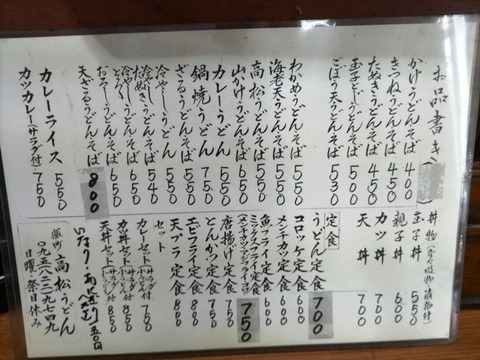 お品書き
かけうどんそば 400
きつねうどんそば 450
たぬきうどんそば 450
玉子とじうどんそば 500
ごぼう天うどんそば 530
わかめうどんそば 550
海老天うどんそば 550
高松うどんそば 550
山かけうどんそば 650
カレーうどん 550
鍋焼うどん 750
ざるうどんそば 550
冷やしうどんそば 540
うどんそば 550
うどんそば 650
おろしうどんそば 650
天ざるうどんそば 800
カレーライス 550
カツカレー(サラダ付) 750
丼物
玉子丼 550
親子丼 600
カツ丼 700
天丼 700
定食
うどん定食 700
コロッケ定食 600
メンチカツ定食 600
魚フライ定食 600
ミックスフライ定食 750
唐揚げ定食 750
とんかつ定食
エビフライ定食 800
天プラ定食 800
セット
カレーセット
カツ丼セット 850
天丼セット 850
いなり
高松うどん
日曜、祭日休み